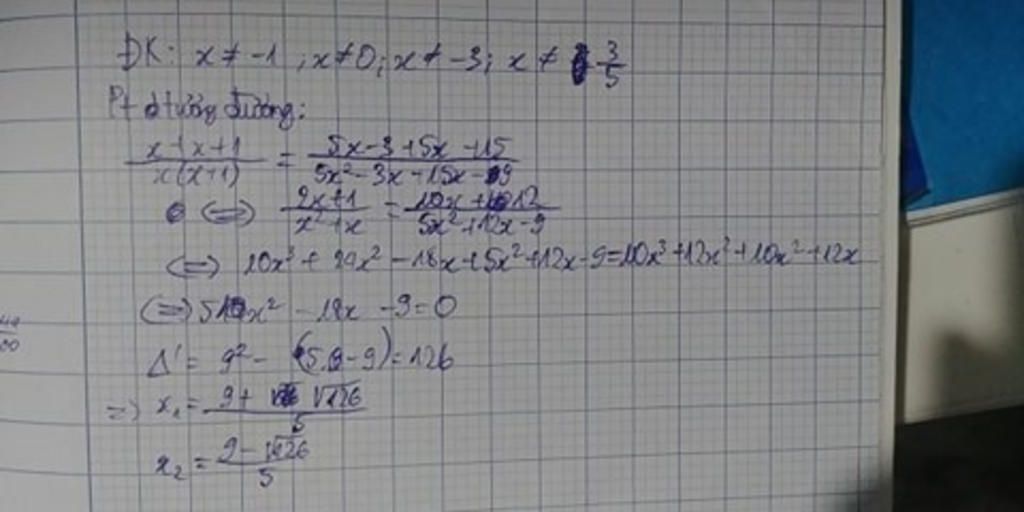 ĐK: x ≠ -1 ; x ≠ 0 ; x ≠ -3 ; x ≠ 3/5
Pt tương đương:
(x + x + 1)/(x(x+1)) = (5x - 3 + 5x + 15)/(5x² - 3x + 15x - 9)
⇔ (2x+1)/(x²+x) = (10x + 12)/(5x² + 12x - 9)
⇔ 10x³ + 24x² - 18x + 5x² + 12x - 9 = 10x³ + 12x² + 10x² + 12x
⇔ 5x² - 18x - 9 = 0
Δ' = 9² - (5.(-9)) = 126
⇒ x₁ = (9 + √126)/5
x₂ = (9 - √126)/5